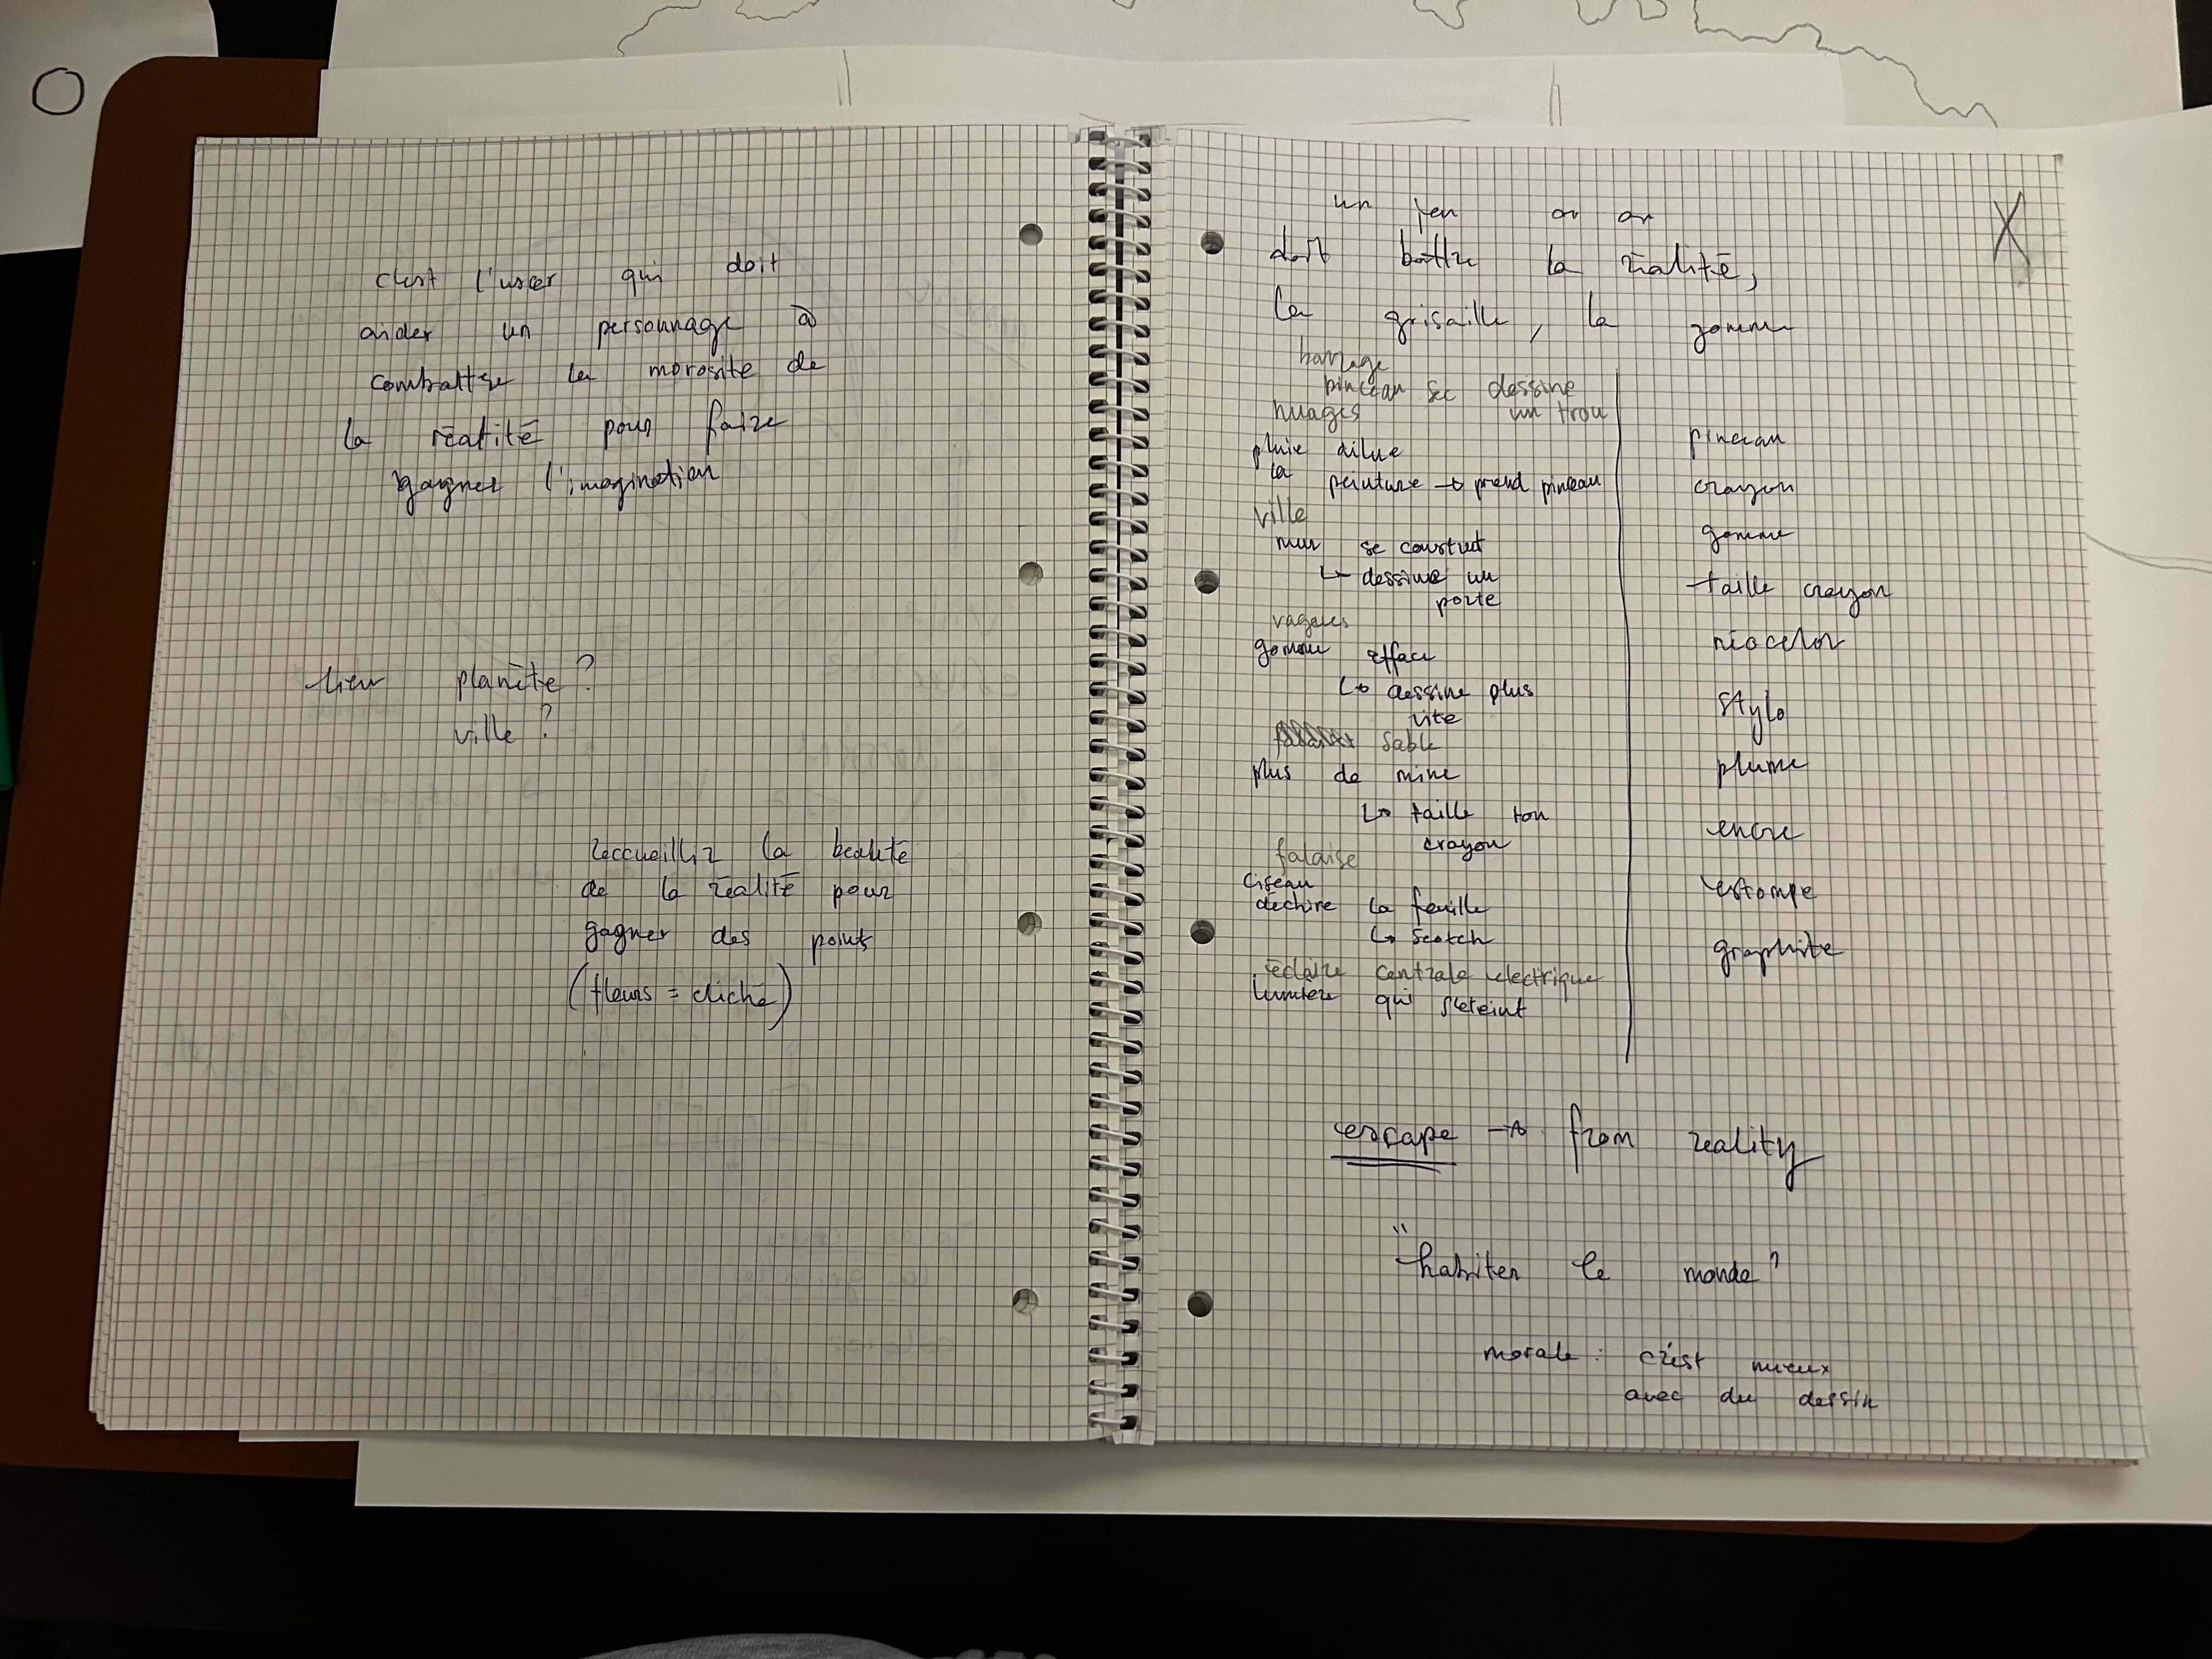 c'est l'user qui doit
aider un personnage à
combattre la morosité de
la réalité pour faire
gagner l'imagination
lieu planète ?
ville ?
reccueillir la beauté
de la réalité pour
gagner des points
(fleurs = cliché)
un jeu où on
doit battre la réalité,
la grisaille, la gomme
barrage
pinceau sec dessine
nuages un trou
pluie dilue
la peinture → prend pinceau
ville
mur se construit
↳ dessine un
porte
vagues
gomme efface
↳ dessine plus
vite
sable
plus de mine
↳ taille ton
crayon
falaise
ciseau
déchire la feuille
↳ scotch
éclaire centrale electrique
lumière qui s'éteint
pinceau
crayon
gomme
taille crayon
néocolor
stylo
plume
encre
estompe
graphite
escape → from reality
"habiter le monde"
morale : c'est mieux
avec du dessin
X